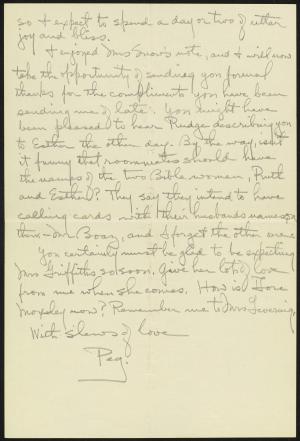 so & expect to spend a day or two of utter
joy and bliss.
I enjoyed Mrs Snow's note, and I will now
take the opportunity of sending you formal
thanks for the compliments you have been
sending me of late. You might have
been pleased to hear Rudge describing you
to Esther the other day. By the way, isn't
it funny that roommates should have
the names of the two Bible women, Ruth
and Esther? They say they intend to have
calling cards with their husbands names on
them - Mr Boaz, and I forget the other one.
You certainly must be glad to be expecting
Mrs Griffiths so soon. Give her lots of love
from me when she comes. How is
Moxley now? Remember me to Mrs
With slews of love
Peg.